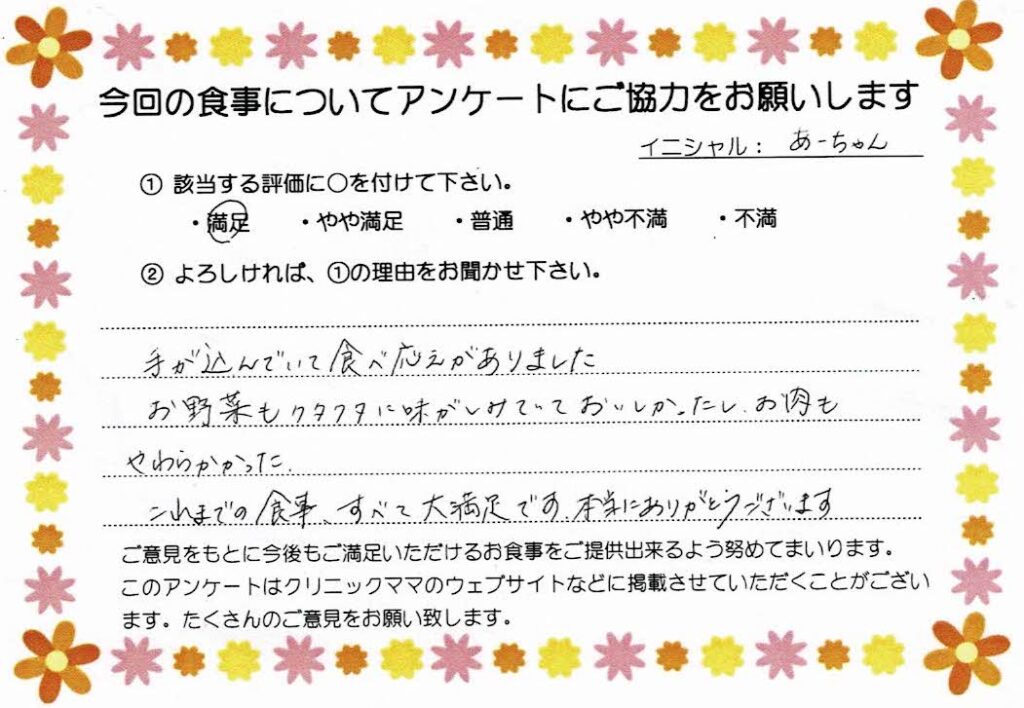 今回の食事についてアンケートにご協力をお願いします
イニシャル： あーちゃん
① 該当する評価に○を付けて下さい。
・満足 ・やや満足 ・普通 ・やや不満 ・不満
② よろしければ、①の理由をお聞かせ下さい。
手が込んでいて食べ応えがありました
お野菜もクタクタに味がしみていておいしかったし、お肉も
やわらかかった。
これまでの食事、すべて大満足です。本当にありがとうございます
ご意見をもとに今後もご満足いただけるお食事をご提供出来るよう努めてまいります。
このアンケートはクリニックママのウェブサイトなどに掲載させていただくことがござい
ます。たくさんのご意見をお願い致します。